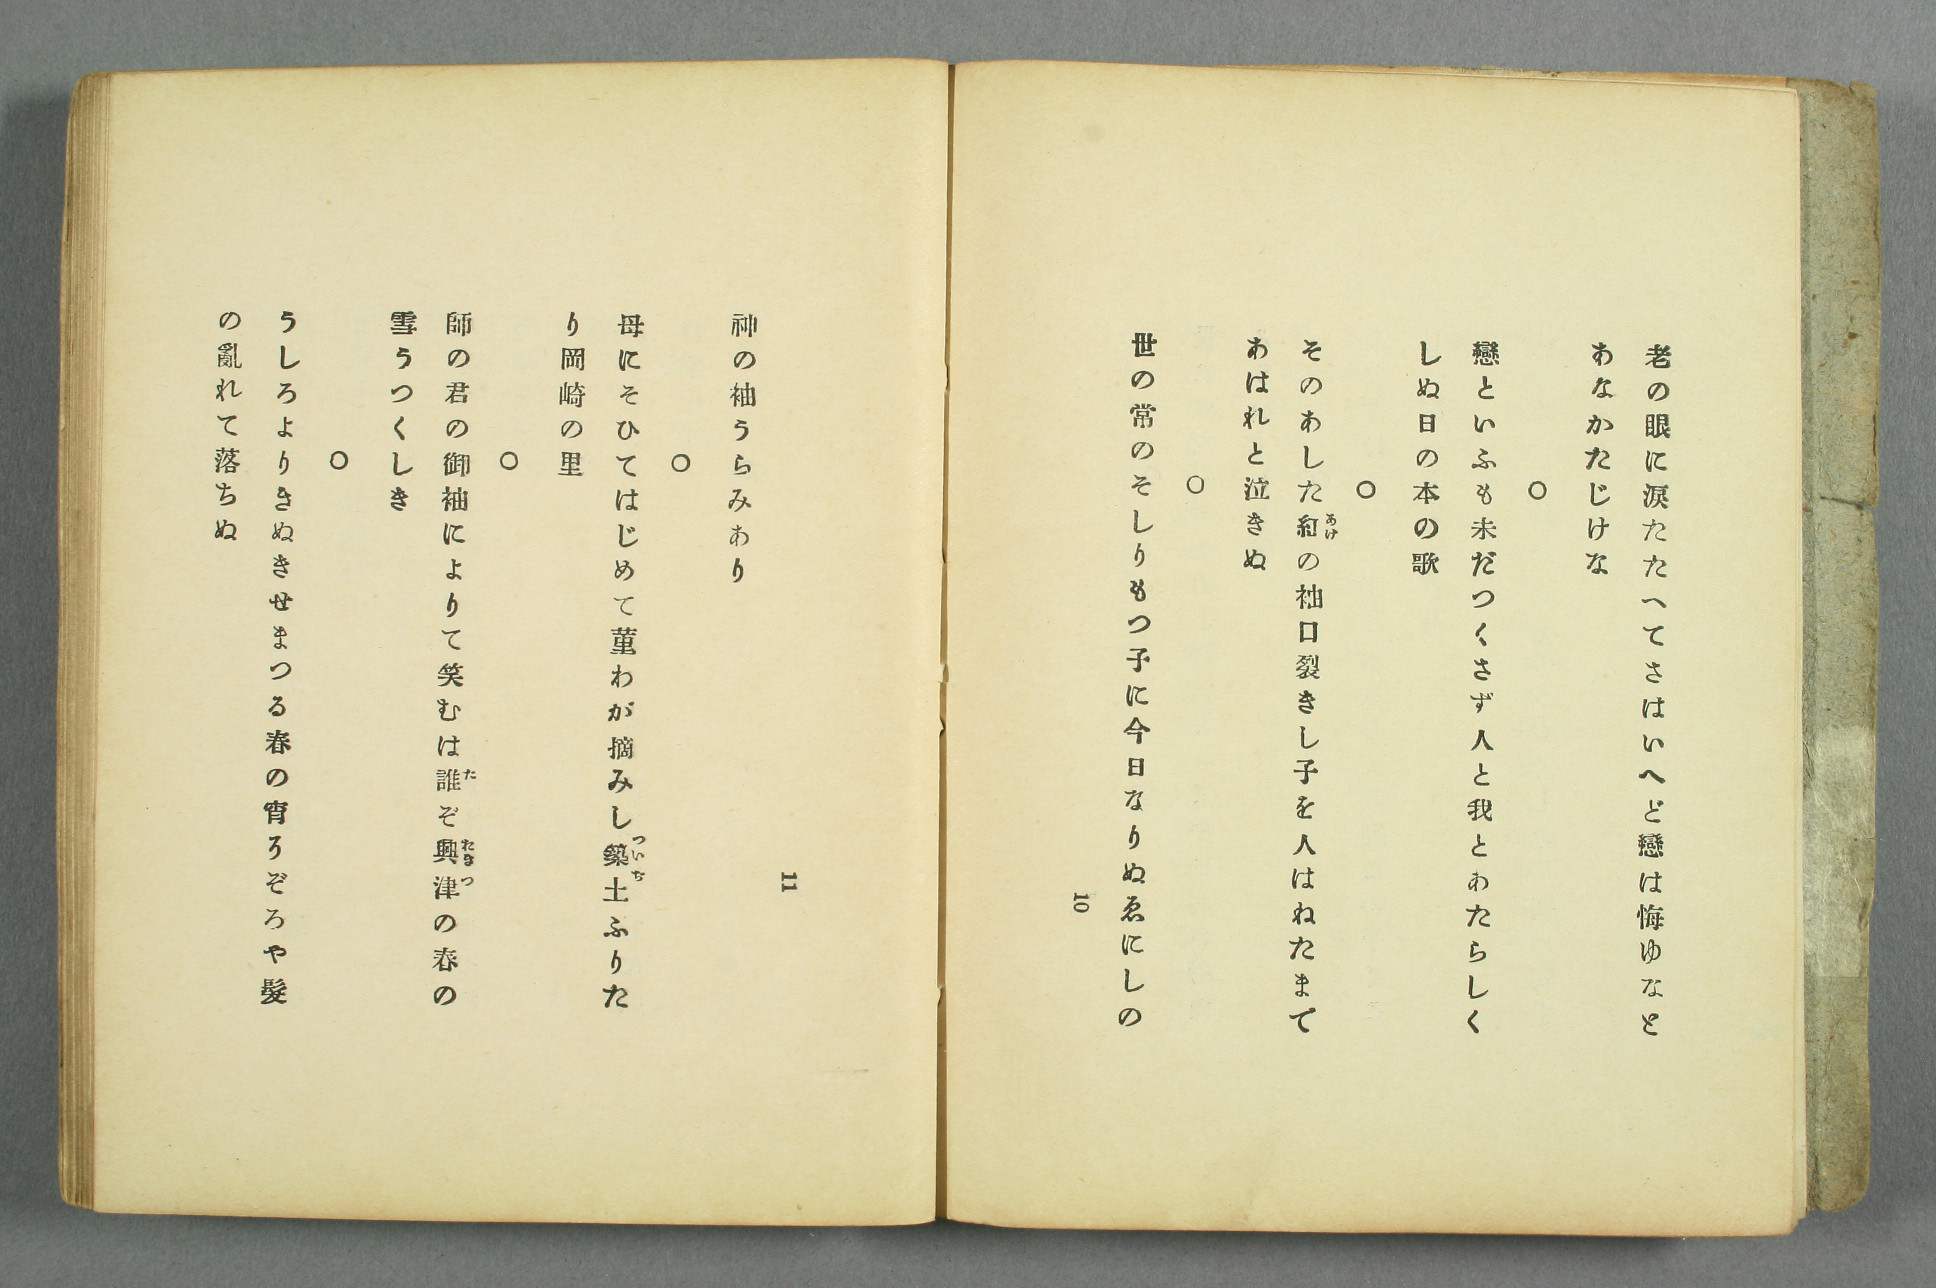 老の眼に涙たたへてさはいへど戀は悔ゆなと
あなかたじけな
○
戀といふも未だつくさず人と我とあたらしく
しぬ日の本の歌
○
そのあした紅の袖口裂きし子を人はねたまで
あけ
あはれと泣きぬ
○
世の常のそしりもつ子に今日なりぬゑにしの
10
11
神の袖うらみあり
○
母にそひてはじめて菫わが摘みし築土ふりた
ついぢ
り岡崎の里
○
師の君の御袖によりて笑むは誰ぞ興津の春の
た
おきつ
雪うつくしき
○
うしろよりきぬきせまつる春の宵ろぞろや髮
の亂れて落ちぬ